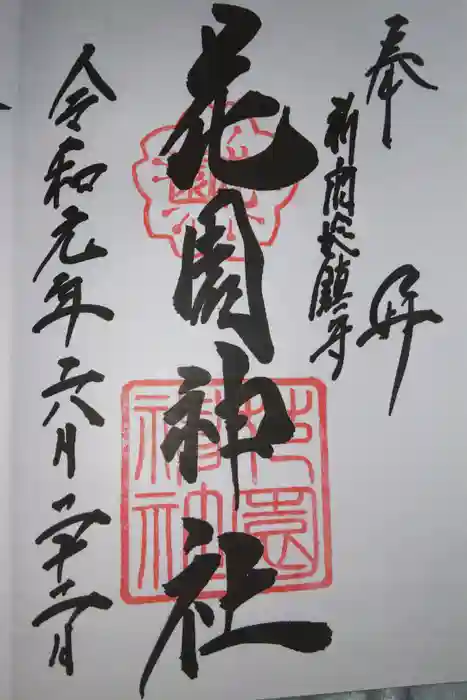 奉拝
新宿総鎮守
花園神社
令和元年六月二十二日
花園神社